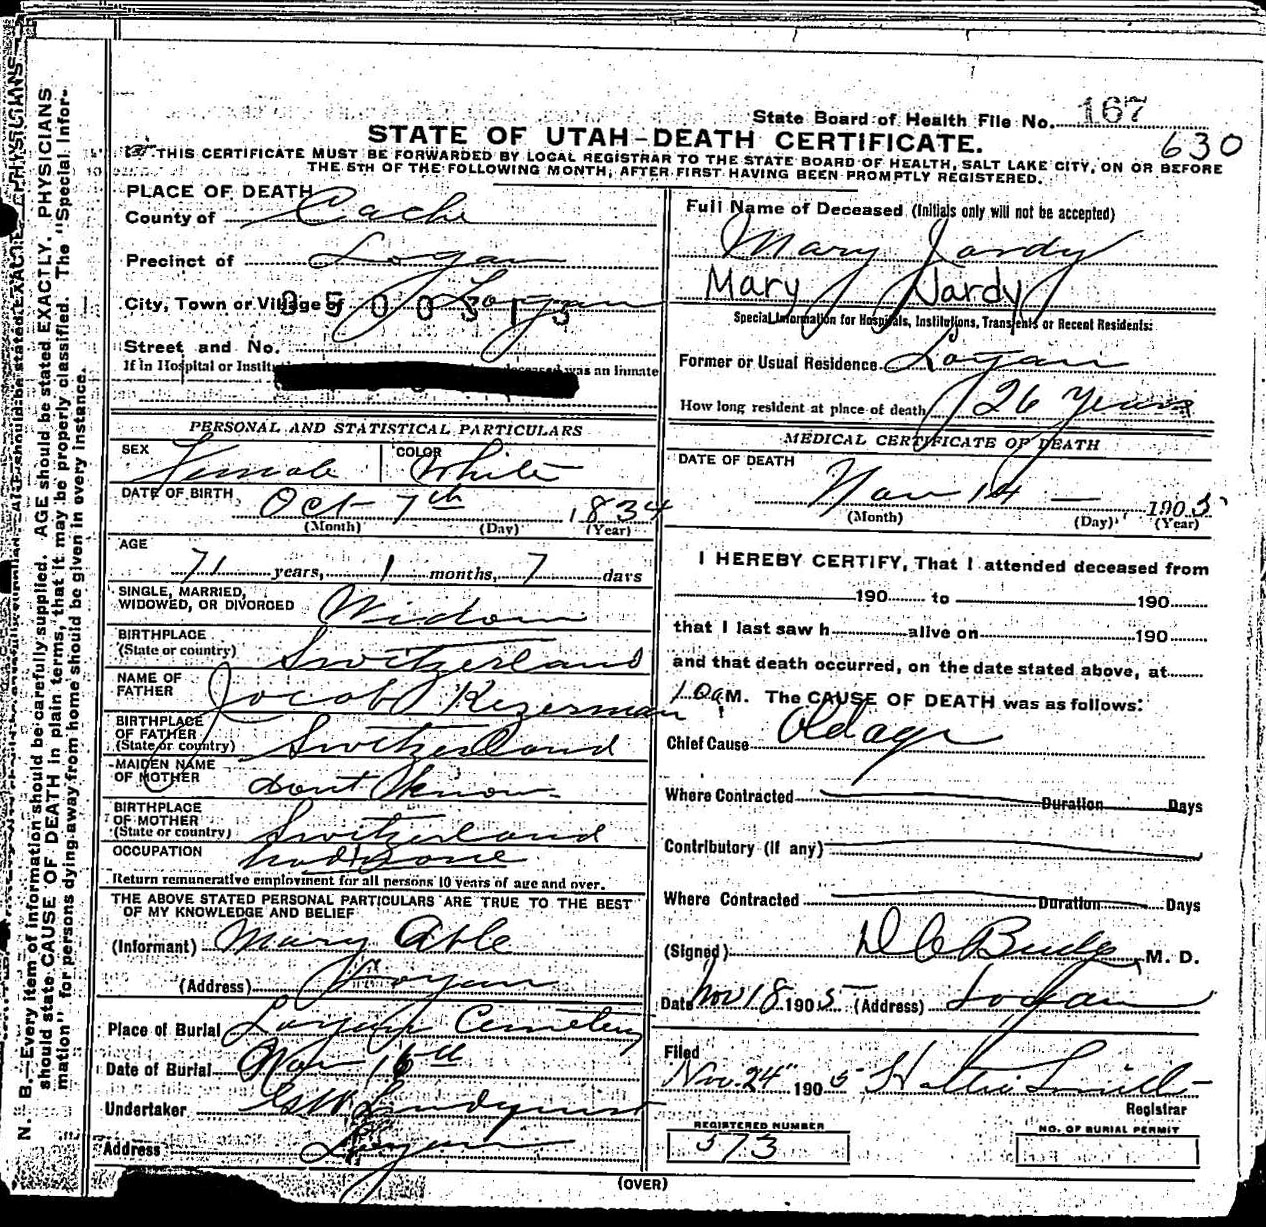 State Board of Health File No. 167
630
STATE OF UTAH-DEATH CERTIFICATE.
THIS CERTIFICATE MUST BE FORWARDED BY LOCAL REGISTRAR TO THE STATE BOARD OF HEALTH, SALT LAKE CITY, ON OR BEFORE
THE 5TH OF THE FOLLOWING MONTH, AFTER FIRST HAVING BEEN PROMPTLY REGISTERED.
PLACE OF DEATH
County of Cache
Precinct of Logan
City, Town or Village of Logan
0500313
Street and No.
If in Hospital or deceased was an inmate
PERSONAL AND STATISTICAL PARTICULARS
SEX Female COLOR White
DATE OF BIRTH Oct 7th 1834
(Month) (Day) (Year)
AGE
71 years, 1 months, 7 days
SINGLE, MARRIED,
WIDOWED, OR DIVORCED Widow
BIRTHPLACE
(State or country) Switzerland
NAME OF
FATHER Jocob Kezerman
BIRTHPLACE
OF FATHER
(State or country) Switzerland
MAIDEN NAME
OF MOTHER dont Know
BIRTHPLACE
OF MOTHER
(State or country) Switzerland
OCCUPATION
Return remunerative employment for all persons 10 years of age and over.
THE ABOVE STATED PERSONAL PARTICULARS ARE TRUE TO THE BEST
OF MY KNOWLEDGE AND BELIEF
(Informant) Mary Able
(Address) Logan
Place of Burial Logan Cemetery
Date of Burial Nov 16th
Undertaker Lindquist
Address Logan
Full Name of Deceased (Initials only will not be accepted)
Mary Jardy
Mary Jardy
Special Information for Hospitals, Institutions, Transients or Recent Residents:
Former or Usual Residence Logan
How long resident at place of death 26 Years
MEDICAL CERTIFICATE OF DEATH
DATE OF DEATH
Nov 14 1905
(Month) (Day) (Year)
I HEREBY CERTIFY, That I attended deceased from
190 to 190
that I last saw h alive on 190
and that death occurred, on the date stated above, at
10 a M. The CAUSE OF DEATH was as follows:
Chief Cause Old age
Where Contracted Duration Days
Contributory (if any)
Where Contracted Duration Days
(Signed) D C Budge M. D.
Date Nov 18 1905 (Address) Logan
Filed
Nov. 24 1905 Hattie Smith
Registrar
REGISTERED NUMBER
573
NO. OF BURIAL PERMIT
(OVER)
N. B.—Every item of information should be carefully supplied. AGE should be stated EXACTLY. PHYSICIANS
should state CAUSE OF DEATH in plain terms, that it may be properly classified. The "Special Infor-
mation" for persons dying away from home should be given in every instance.